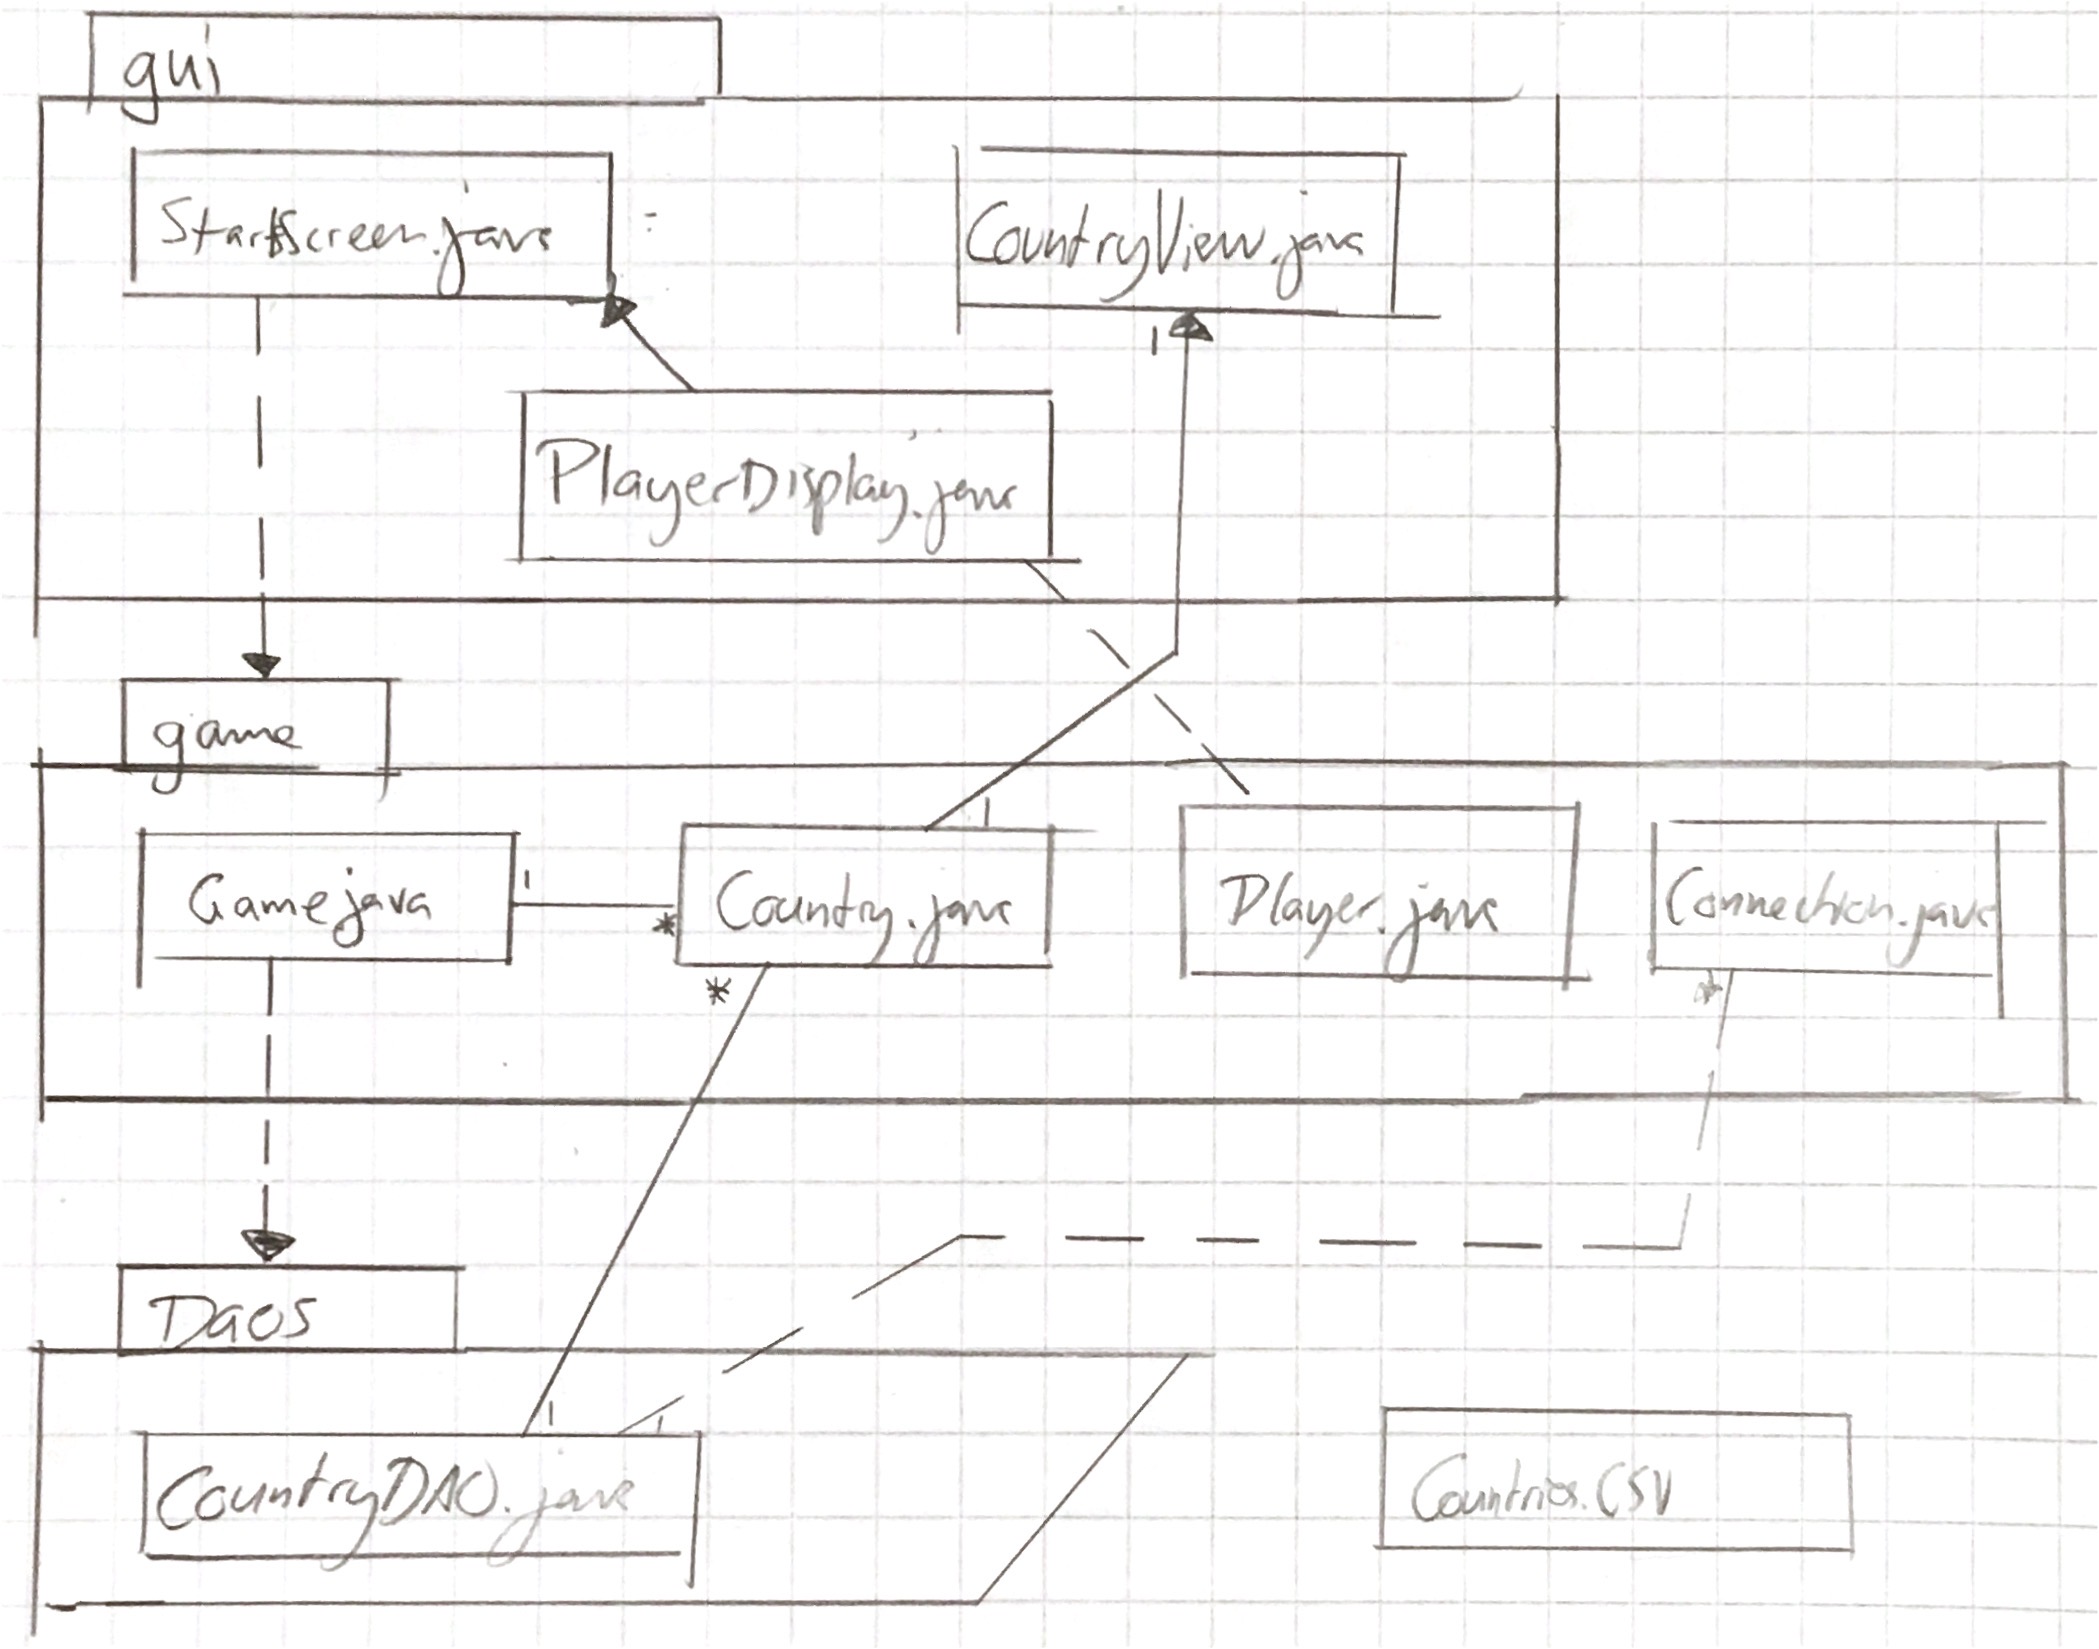 gui
StartScreen.java
CountryView.java
1
PlayerDisplay.java
game
1
Game java
1
*
Country.java
Player.java
Connection.java
*
*
Daos
1
1
CountryDAO.java
Countries.CSV